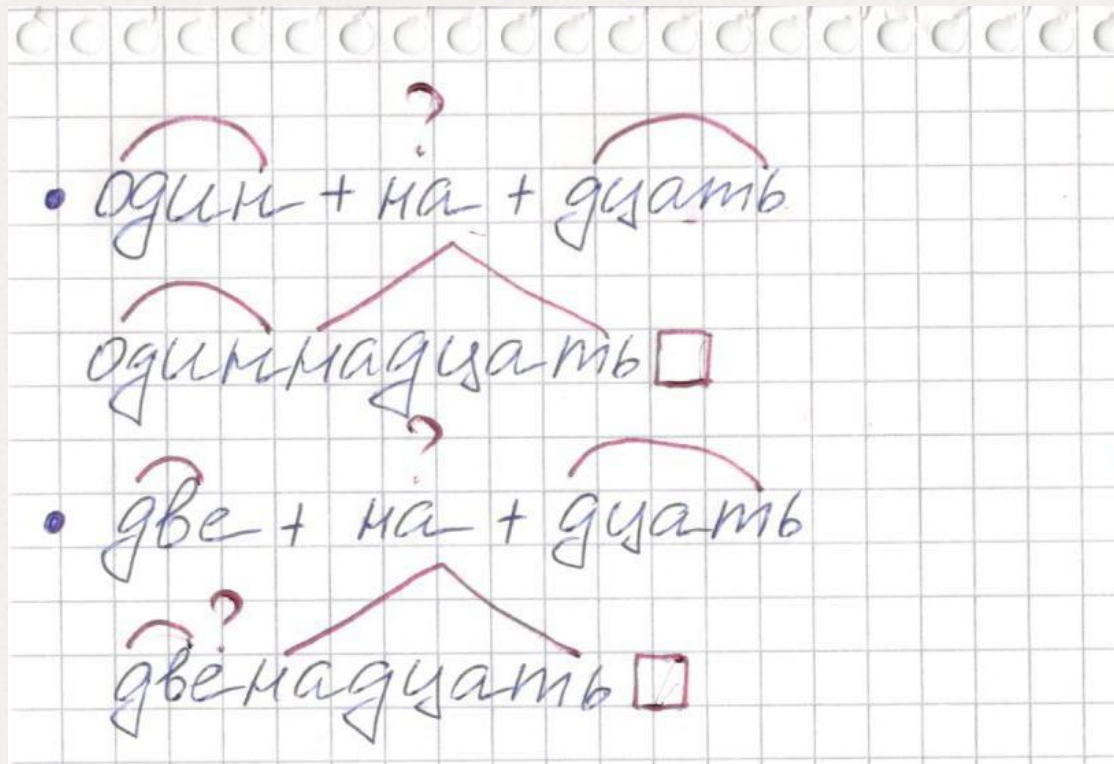 ?
• один + на + дцать
одиннадцать
?
• две + на + дцать
?
двенадцать